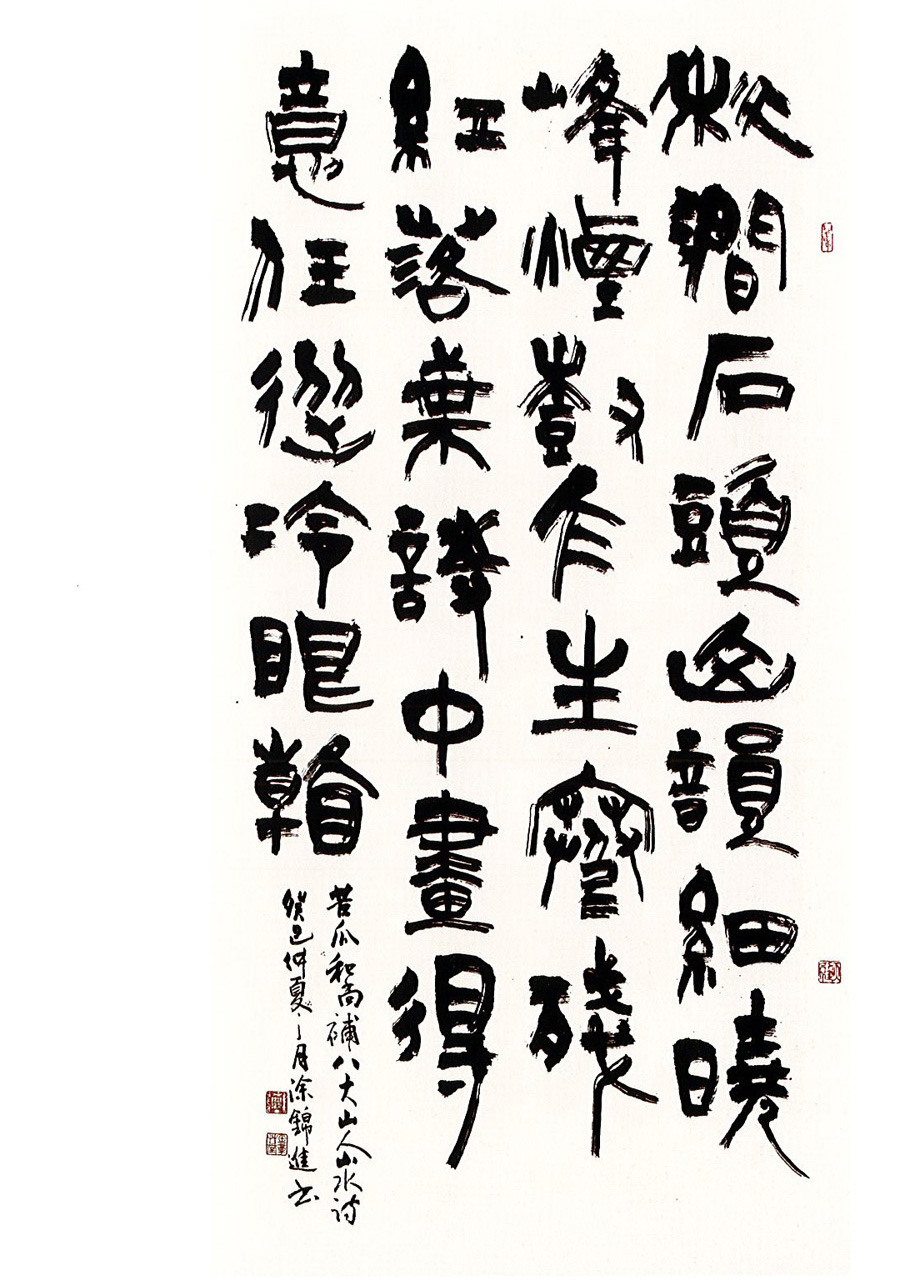 秋澗石頭韻細曉
峰煙樹乍生寒殘
紅落葉詩中畫得
意任從冷眼看
苦瓜和尚補八大山人山水詩
癸巳仲夏之月涂錦進書